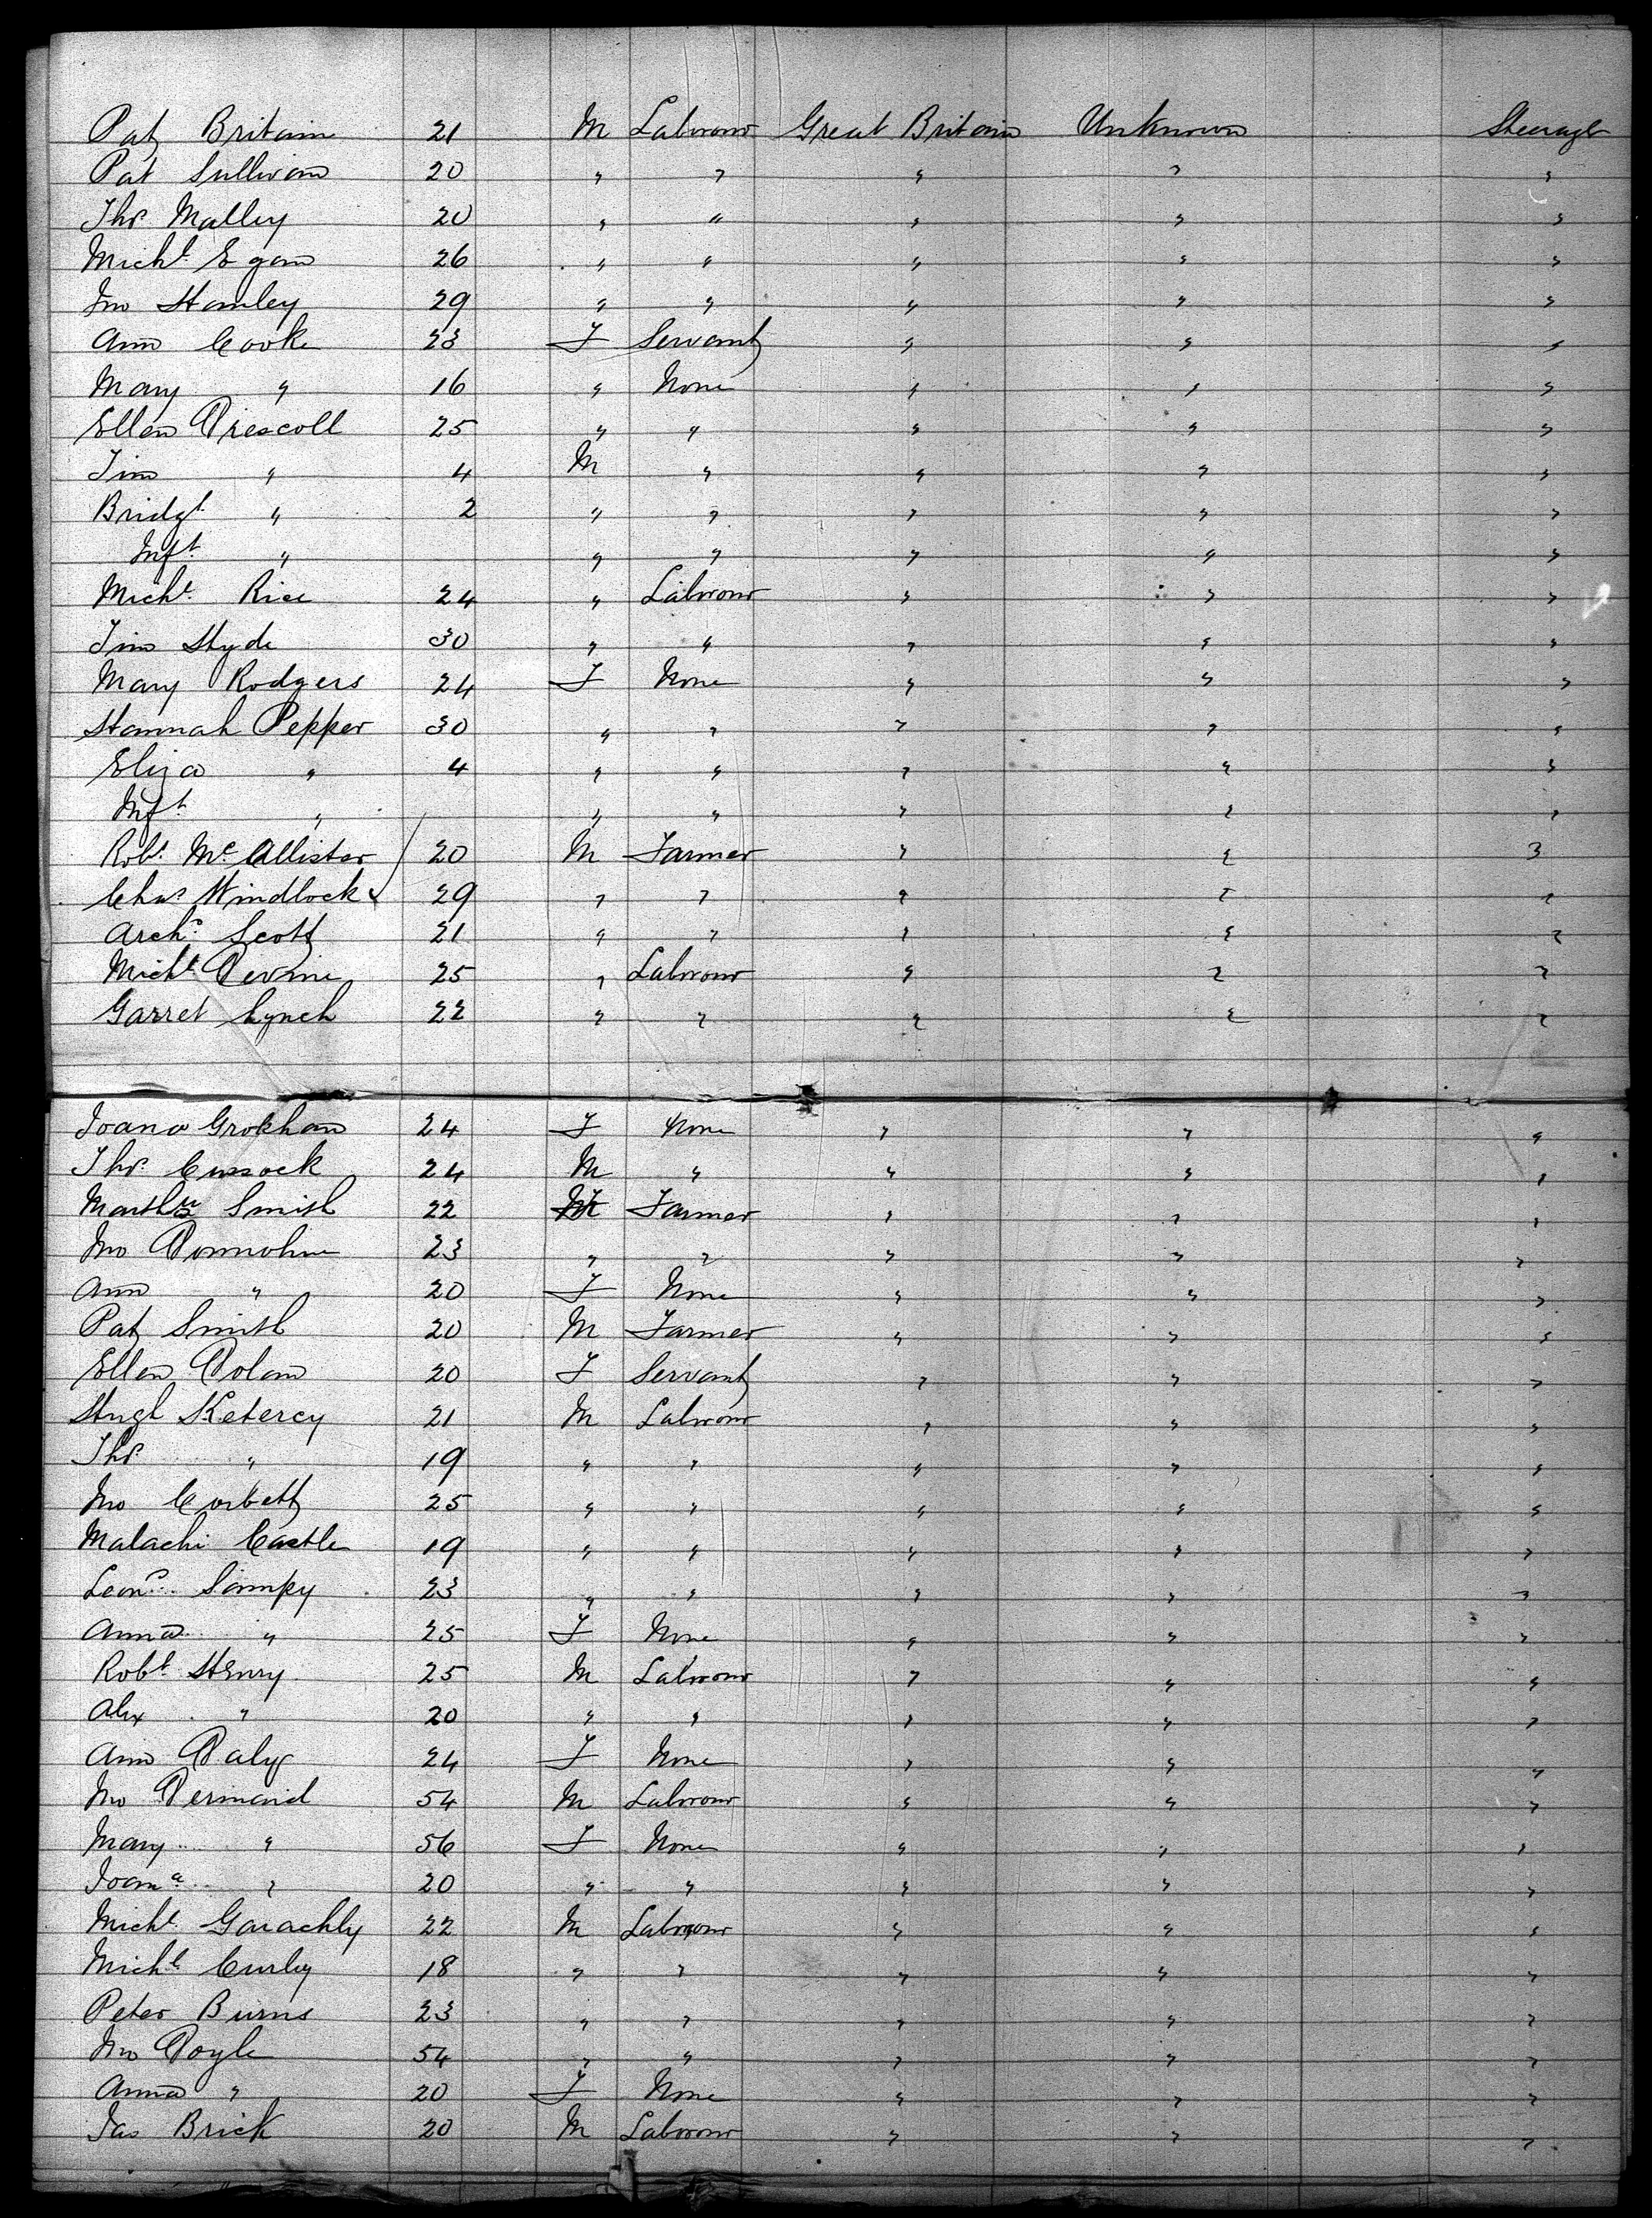 Pat Britain 21 M Labourer Great Britain Unknown Steerage
Pat Sullivan 20 " " " " "
Thos Malley 20 " " " " "
Michl Egan 26 " " " " "
Jno Stanley 29 " " " " "
Ann Cooke 23 F Servant " " "
Mary " 16 " None " " "
Ellen Driscoll 25 " " " " "
Tim " 4 M " " " "
Bridgt " 2 " " " " "
Inft " " " " " "
Michl Rice 24 " Labourer " " "
Tim Hyde 30 " " " " "
Mary Rodgers 24 F None " " "
Hannah Pepper 30 " " " " "
Eliza " 4 " " " " "
Inft " " " " " "
Robt McAllister 20 M Farmer " " "
Chas Windlock 29 " " " " "
Archd Scott 21 " " " " "
Michl Devine 25 " Labourer " " "
Garret Lynch 22 " " " " "
Joana Grokhan 24 F None " " "
Thos Cussock 24 M " " " "
Smith 22 Farmer " " "
Jno Donnohue 23 " " " " "
Ann " 20 F None " " "
Pat Smith 20 M Farmer " " "
Ellen Dolan 20 F Servant " " "
Hugh Ketercy 21 M Labourer " " "
Thos " 19 " " " " "
Jno Corbett 25 " " " " "
Malachi Castle 19 " " " " "
Leond Sampy 23 " " " " "
Anna " 25 F None " " "
Robt Henry 25 M Labourer " " "
Alex " 20 " " " " "
Ann Daly 24 F None " " "
Jno Dermaid 54 M Labourer " " "
Mary " 56 F None " " "
Joana " 20 " " " " "
Michl Garachly 22 M Labourer " " "
Michl Curley 18 " " " " "
Peter Burns 23 " " " " "
Jno Doyle 54 " " " " "
Anna " 20 F None " " "
Jas Brick 20 M Labourer " " "